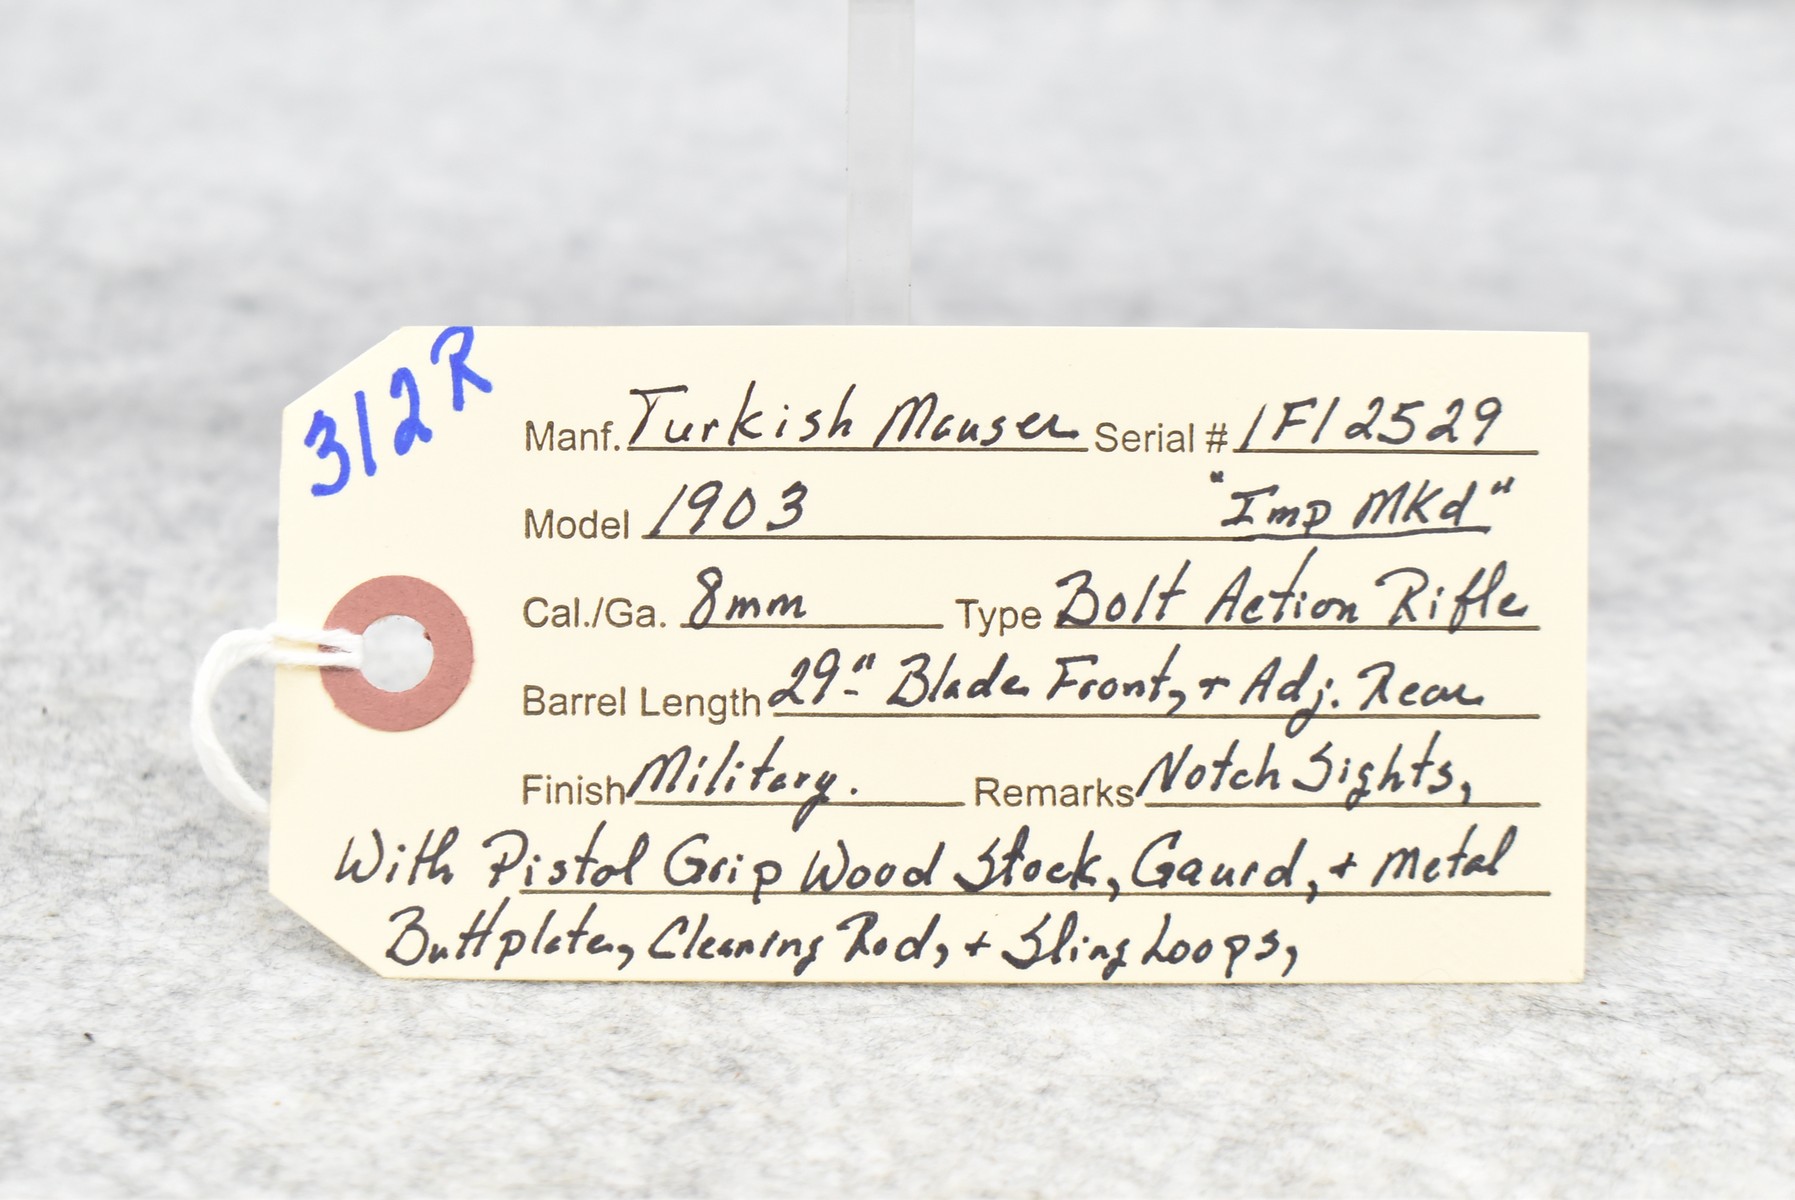 312R
Manf. Turkish Mauser Serial # 1F12529
Model 1903 "Imp MKd"
Cal./Ga. 8mm Type Bolt Action Rifle
Barrel Length 29-" Blade Front, + Adj. Rear
Finish Military. Remarks Notch Sights,
With Pistol Grip Wood Stock, Gaurd, + Metal
Buttplate, Cleaning Rod, + Sling Loops,